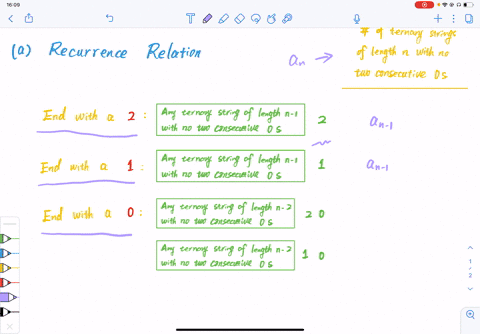 16:09
# of ternary strings
(a) Recurrence Relation
aₙ → of length n with no
two consecutive 0s
End with a 2 :
Any ternary string of length n-1
with no two consecutive 0 s
2
aₙ₋₁
End with a 1 :
Any ternary string of length n-1
with no two consecutive 0 s
1
aₙ₋₁
End with a 0 :
Any ternary string of length n-2
with no two consecutive 0 s
2 0
Any ternary string of length n-2
with no two consecutive 0 s
1 0
1
2